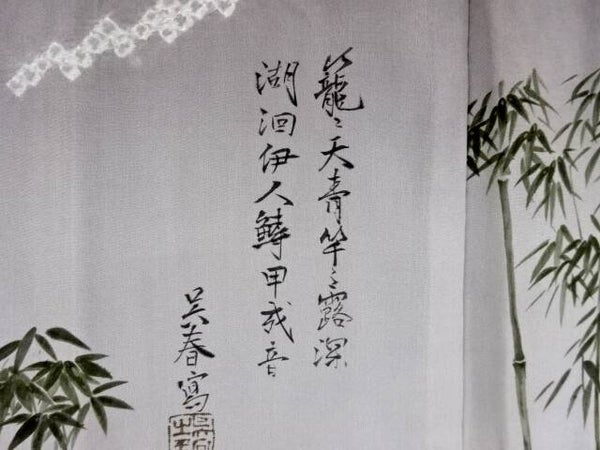 籠〻天青竿〻露深
湖洄伊人鱘甲成音
吴春寫